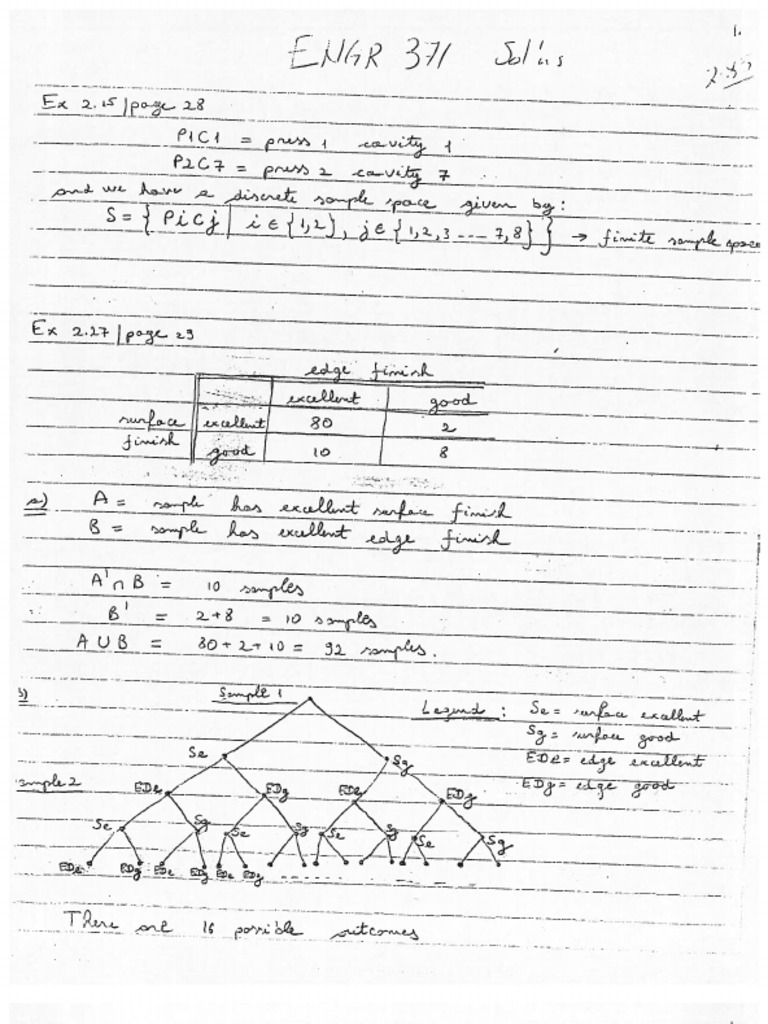 1.
ENGR 371 Sol'ns
Ex 2.15 | page 28
P1C1 = press 1 cavity 1
P2C7 = press 2 cavity 7
and we have a discrete sample space given by:
S = { PiCj | i ∈ {1,2}, j ∈ {1,2,3 ---- 7,8} } → finite sample space
Ex 2.27 | page 29
edge finish
excellent good
surface excellent 80 2
finish good 10 8
a) A = sample has excellent surface finish
B = sample has excellent edge finish
A' ∩ B = 10 samples
B' = 2+8 = 10 samples
A ∪ B = 80 + 2 + 10 = 92 samples.
Sample 1 Legend : Se = surface excellent
Sg = surface good
EDe = edge excellent
EDg = edge good
Se Sg
Sample 2 EDe EDg EDe EDg
Se Sg Se Sg Se Sg Se Sg
EDe EDg EDe EDg EDe EDg - - - - - -
There are 16 possible outcomes